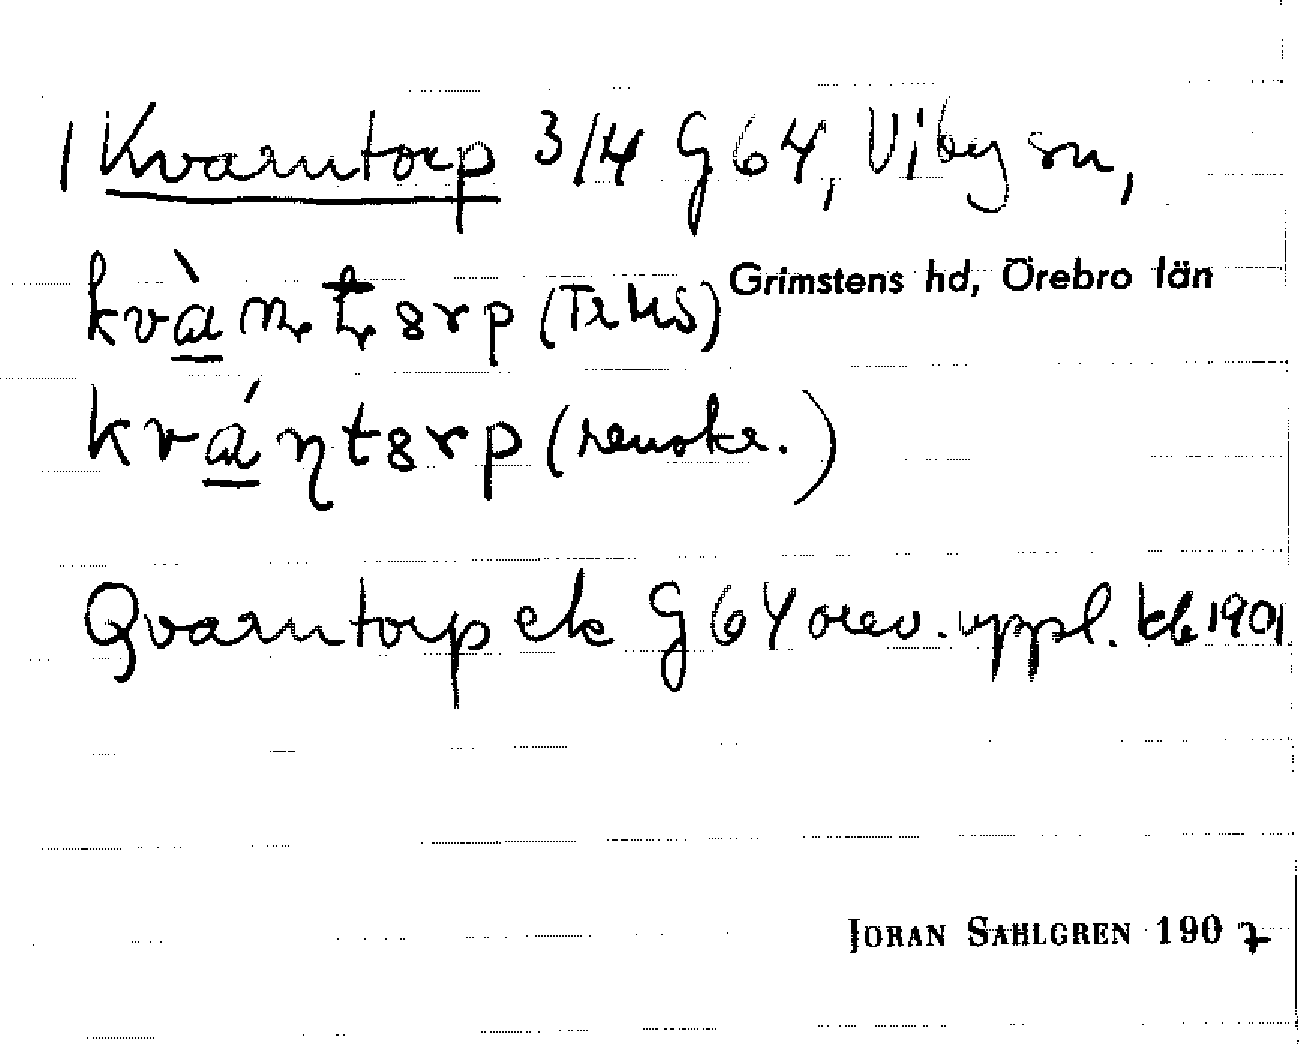 1 Kvarntorp 3/4 G 64, Viby sn,
Grimstens hd, Örebro län
kvàn̥t̥8rp (Tr Us)
kváηt8rp (renskr.)
Qvarntorp ek G 64 orev. uppl. kb 1901
JORAN SAHLGREN 1907